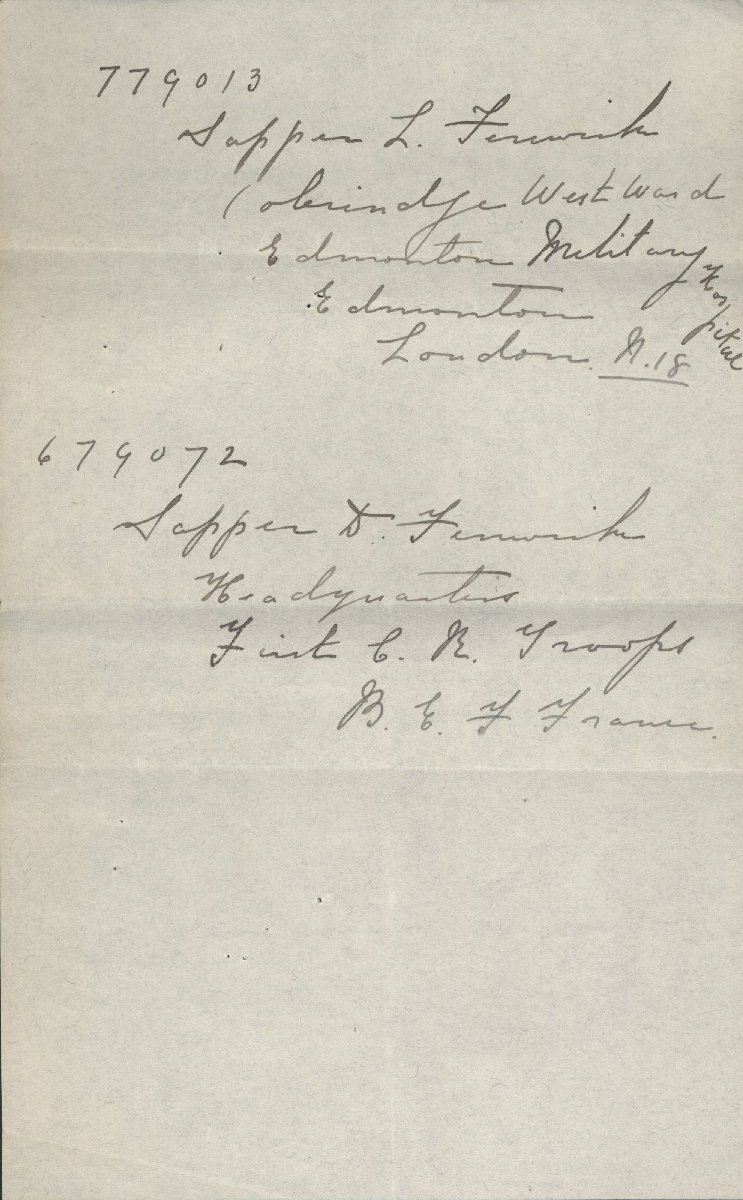 779013
Sapper L. Fenwick
West Ward
Edmonton Military Hospital
Edmonton
London. N.18
679072
Sapper D. Fenwick
Headquarters
First C. R. Troops
B. E. F France.